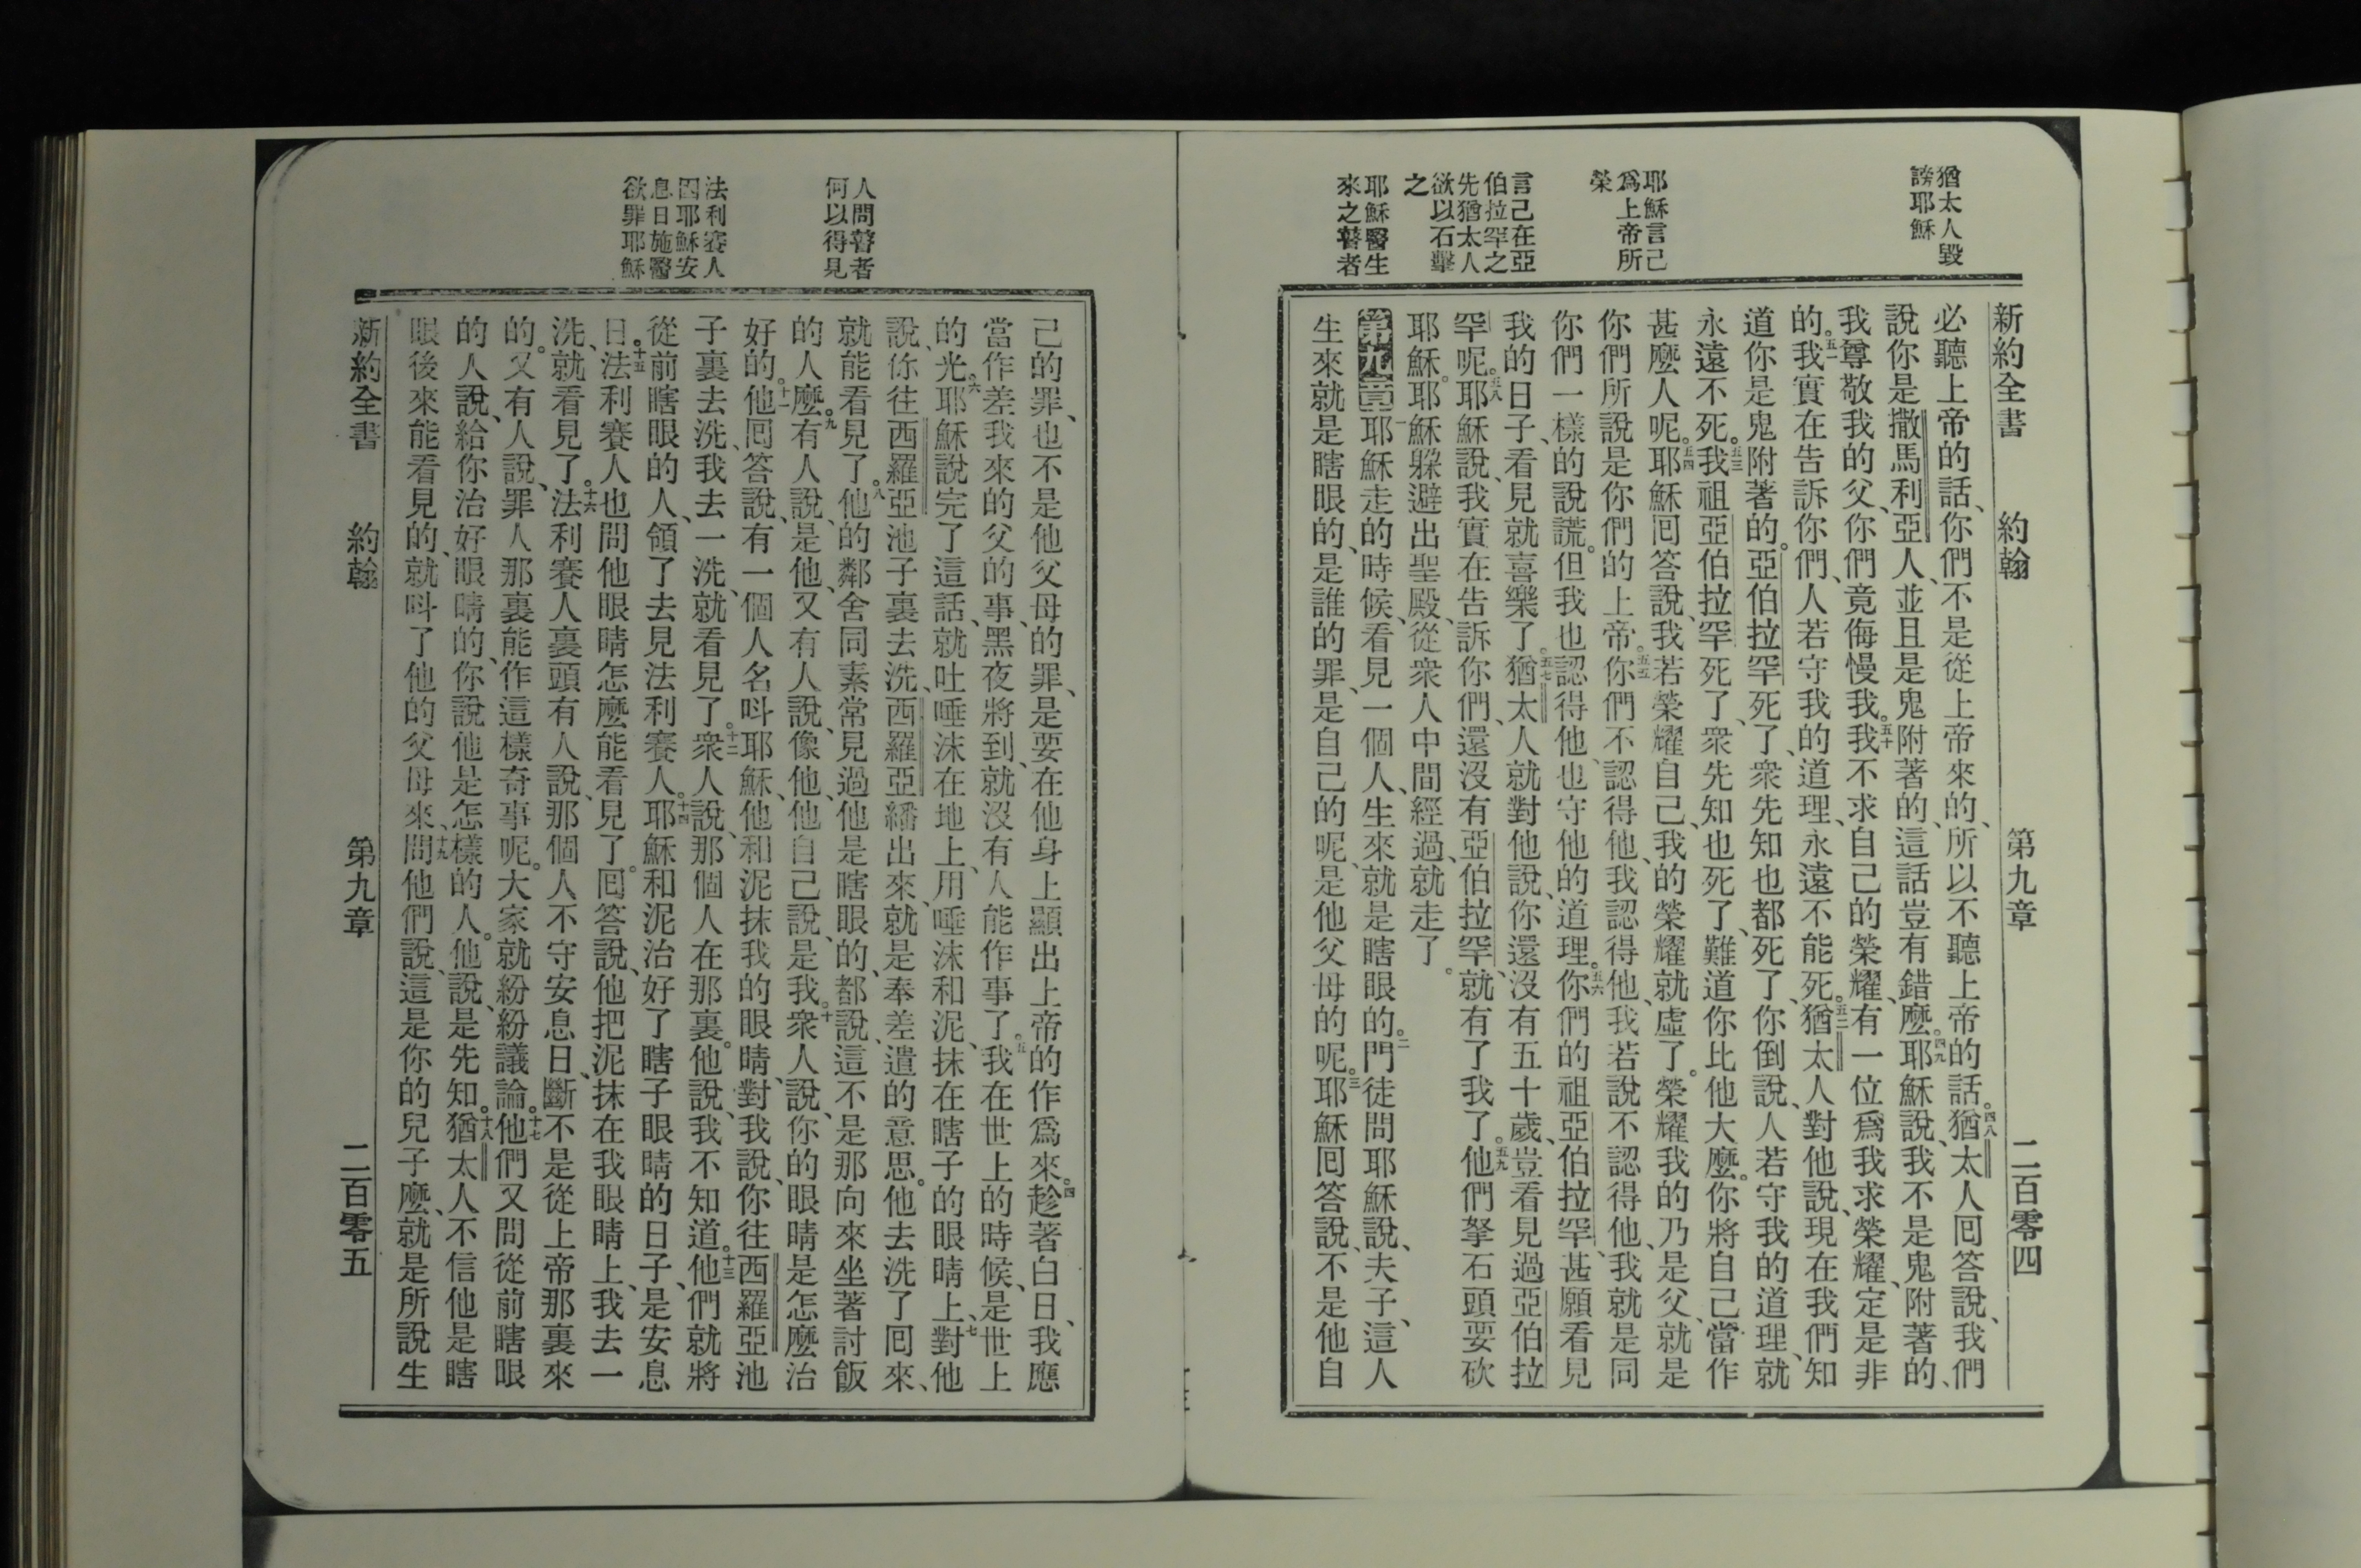 猶太人毀
謗耶穌
耶穌言己
爲上帝所
榮
言己在亞
伯拉罕之
先猶太人
欲以石擊
之
耶穌醫生
來之瞽者
新約全書 約翰 第九章 二百零四
必聽上帝的話、你們不是從上帝來的、所以不聽上帝的話。四八猶太人回答說、我們
說你是撒馬利亞人、並且是鬼附著的、這話豈有錯麽。四九耶穌說、我不是鬼附著的、
我尊敬我的父、你們竟侮慢我。五十我不求自己的榮耀、有一位爲我求榮耀、定是非
的。五一我實在告訴你們、人若守我的道理、永遠不能死。五二猶太人對他說、現在我們知
道你是鬼附著的。亞伯拉罕死了、衆先知也都死了、你倒說、人若守我的道理、就
永遠不死。五三我祖亞伯拉罕死了、衆先知也死了、難道你比他大麽。你將自己當作
甚麽人呢。五四耶穌回答說、我若榮耀自己、我的榮耀就虛了。榮耀我的乃是父、就是
你們所說是你們的上帝。五五你們不認得他、我認得他、我若說不認得他、我就是同
你們一樣的說謊。但我也認得他、也守他的道理。五六你們的祖亞伯拉罕、甚願看見
我的日子、看見就喜樂了。五七猶太人就對他說、你還沒有五十歲、豈看見過亞伯拉
罕呢。五八耶穌說、我實在告訴你們、還沒有亞伯拉罕、就有了我了。五九他們拏石頭要砍
耶穌。耶穌躱避出聖殿、從衆人中間經過、就走了。
第九章一耶穌走的時候、看見一個人、生來就是瞎眼的。二門徒問耶穌說、夫子、這人
生來就是瞎眼的、是誰的罪、是自己的呢、是他父母的呢。三耶穌回答說、不是他自
人問瞽者
何以得見
法利賽人
因耶穌安
息日施醫
欲罪耶穌
己的罪、也不是他父母的罪、是要在他身上顯出上帝的作爲來。四趁著白日、我應
當作差我來的父的事、黑夜將到、就沒有人能作事了。五我在世上的時候、是世上
的光。六耶穌說完了這話、就吐唾沫在地上、用唾沫和泥、抹在瞎子的眼睛上、七對他
說、你往西羅亞池子裏去洗、西羅亞繙出來、就是奉差遣的意思。他去洗了回來、
就能看見了。八他的鄰舍同素常見過他是瞎眼的、都說、這不是那向來坐著討飯
的人麽。九有人說、是他、又有人說、像他、他自己說、是我。十衆人說、你的眼睛是怎麽治
好的。十一他回答說、有一個人名呌耶穌、他和泥抹我的眼睛、對我說、你往西羅亞池
子裏去洗、我去一洗、就看見了。十二衆人說、那個人在那裏。他說、我不知道。十三他們就將
從前瞎眼的人、領了去見法利賽人。十四耶穌和泥治好了瞎子眼睛的日子、是安息
日。十五法利賽人也問他眼睛怎麽能看見了。回答說、他把泥抹在我眼睛上、我去一
洗、就看見了。十六法利賽人裏頭有人說、那個人不守安息日、斷不是從上帝那裏來
的。又有人說、罪人那裏能作這樣奇事呢。大家就紛紛議論。十七他們又問從前瞎眼
的人說、給你治好眼睛的、你說他是怎樣的人。他說、是先知。十八猶太人不信他是瞎
眼後來能看見的、就呌了他的父母來、十九問他們說、這是你的兒子麽、就是所說生
新約全書 約翰 第九章 二百零五